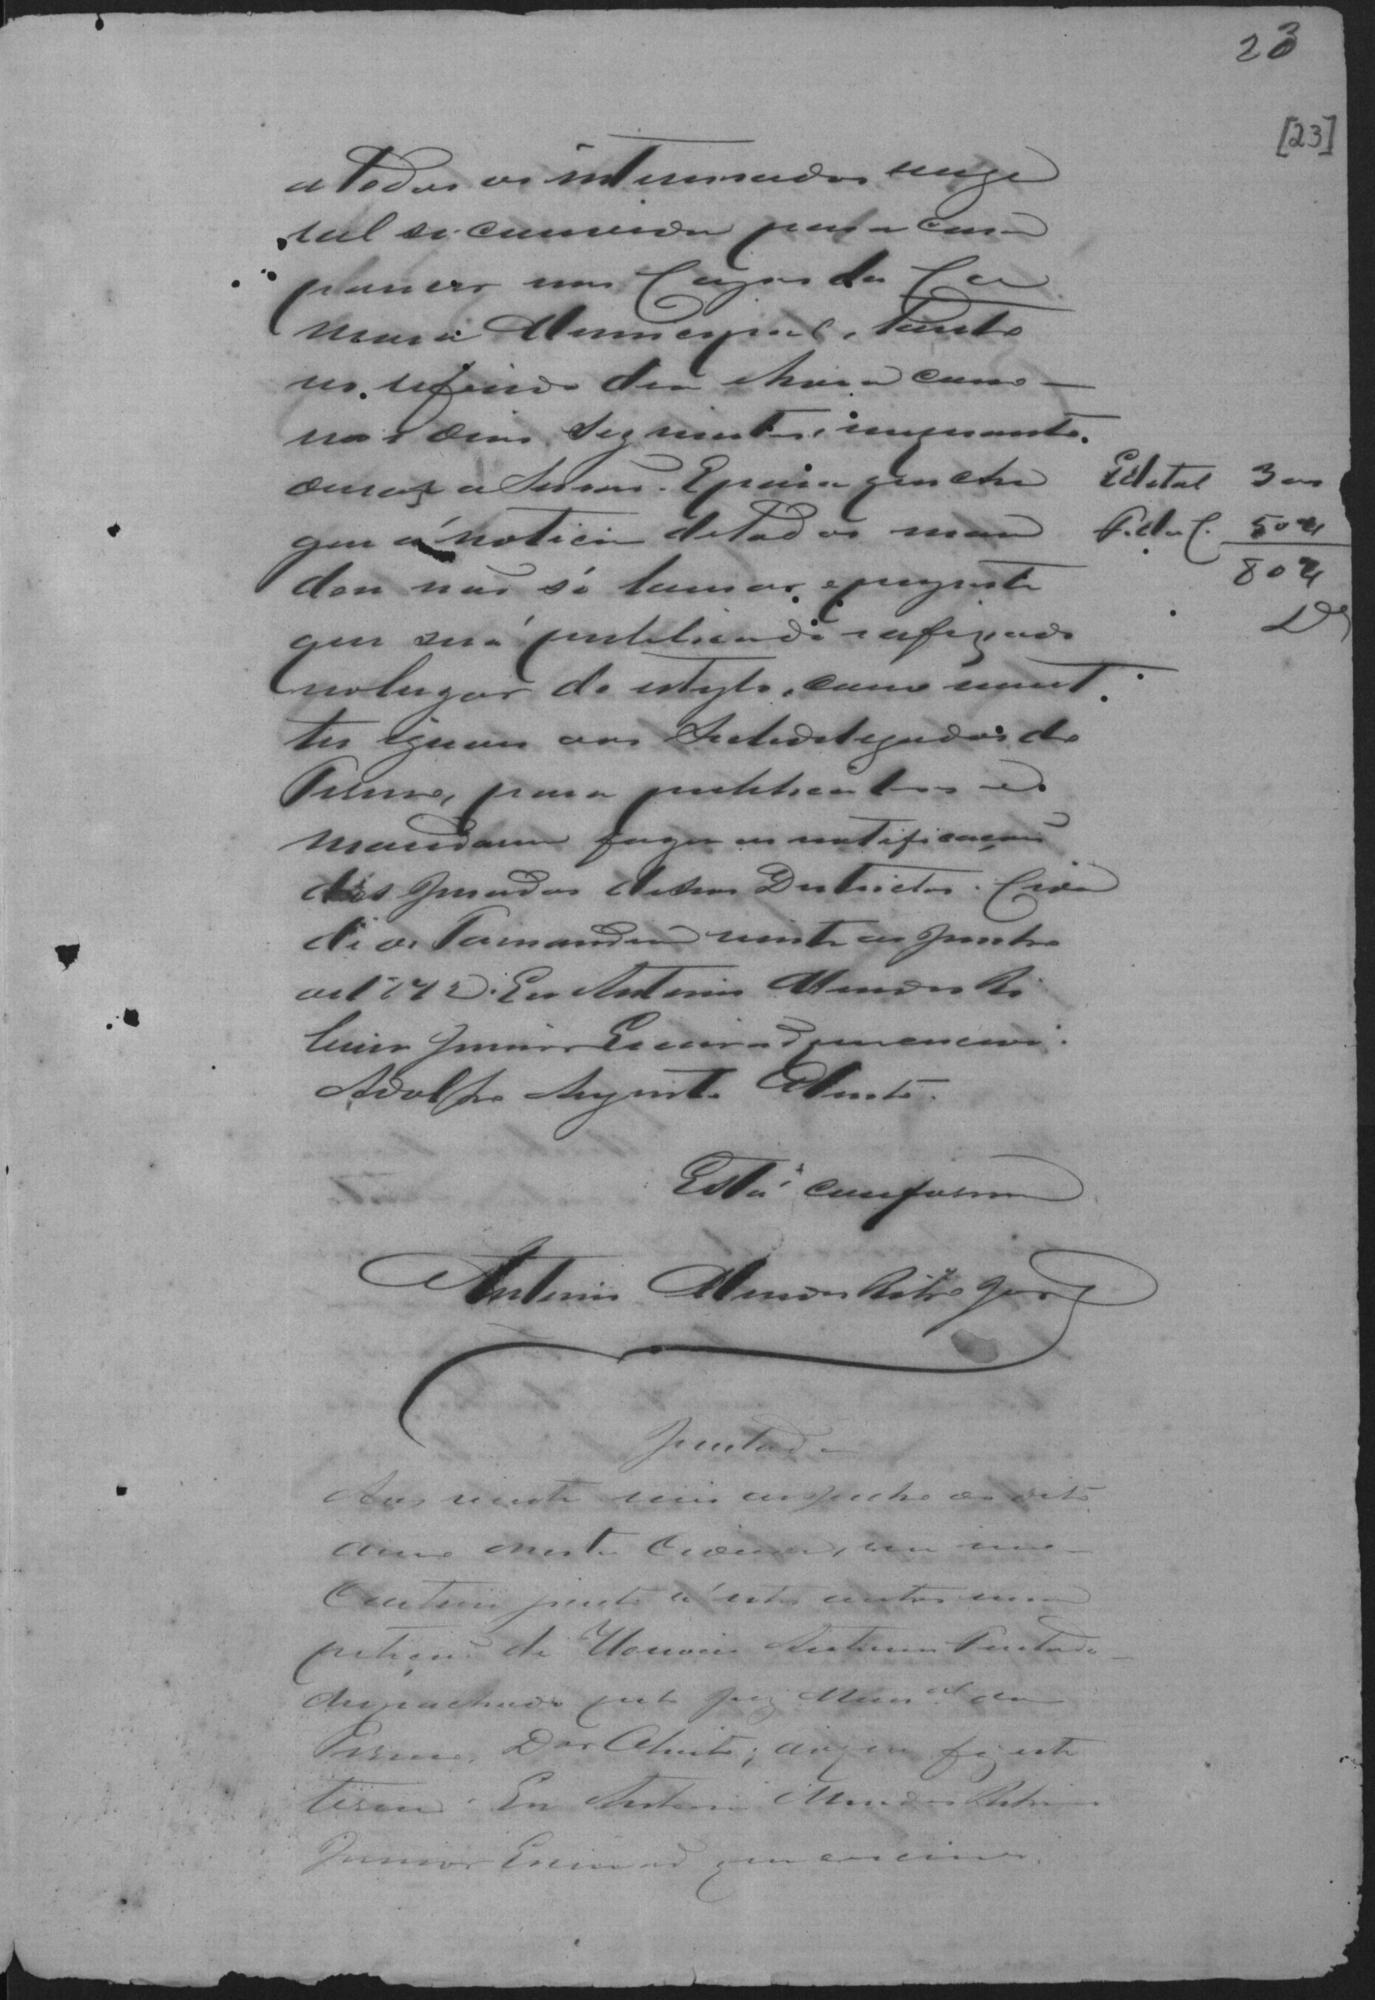 23
[23]
a todos os interessados em ge
ral se convida para com
parecer nos Paços da Ca
mara Municipal, tanto
no referido dia e hora como
nos dias seguintes, emquanto
durar a Sessão. E para que che
gue á noticia de todos man
dou não só lavrar o presente
que será publicado e afixado
no lugar do estylo, como remet
ter iguaes aos Subdelegados do
Termo, para publical-os e
mandarem fazer as notificações
dos Jurados de seus Districtos. Cida
de de vinte de Junho
de 1872. Eu Antonio Mendes Ri
beiro Junior Escrivão que escrevi.
Adolfo Augusto Olinto.
Edital 3000
P. da C. 5024
8024
Está conforme
Antonio Mendes Ribro Jor
Juntada
Aos vinte seis de Junho do dito
anno nesta Cidade, em meo
Cartorio junto a estes autos uma
petição de Honorio Antonio Furtado
despachada pelo Juiz Munal do
Termo, Dor Olinto; do que fiz este
termo. Eu Antonio Mendes Ribeiro
Junior Escrivão que escrevi.